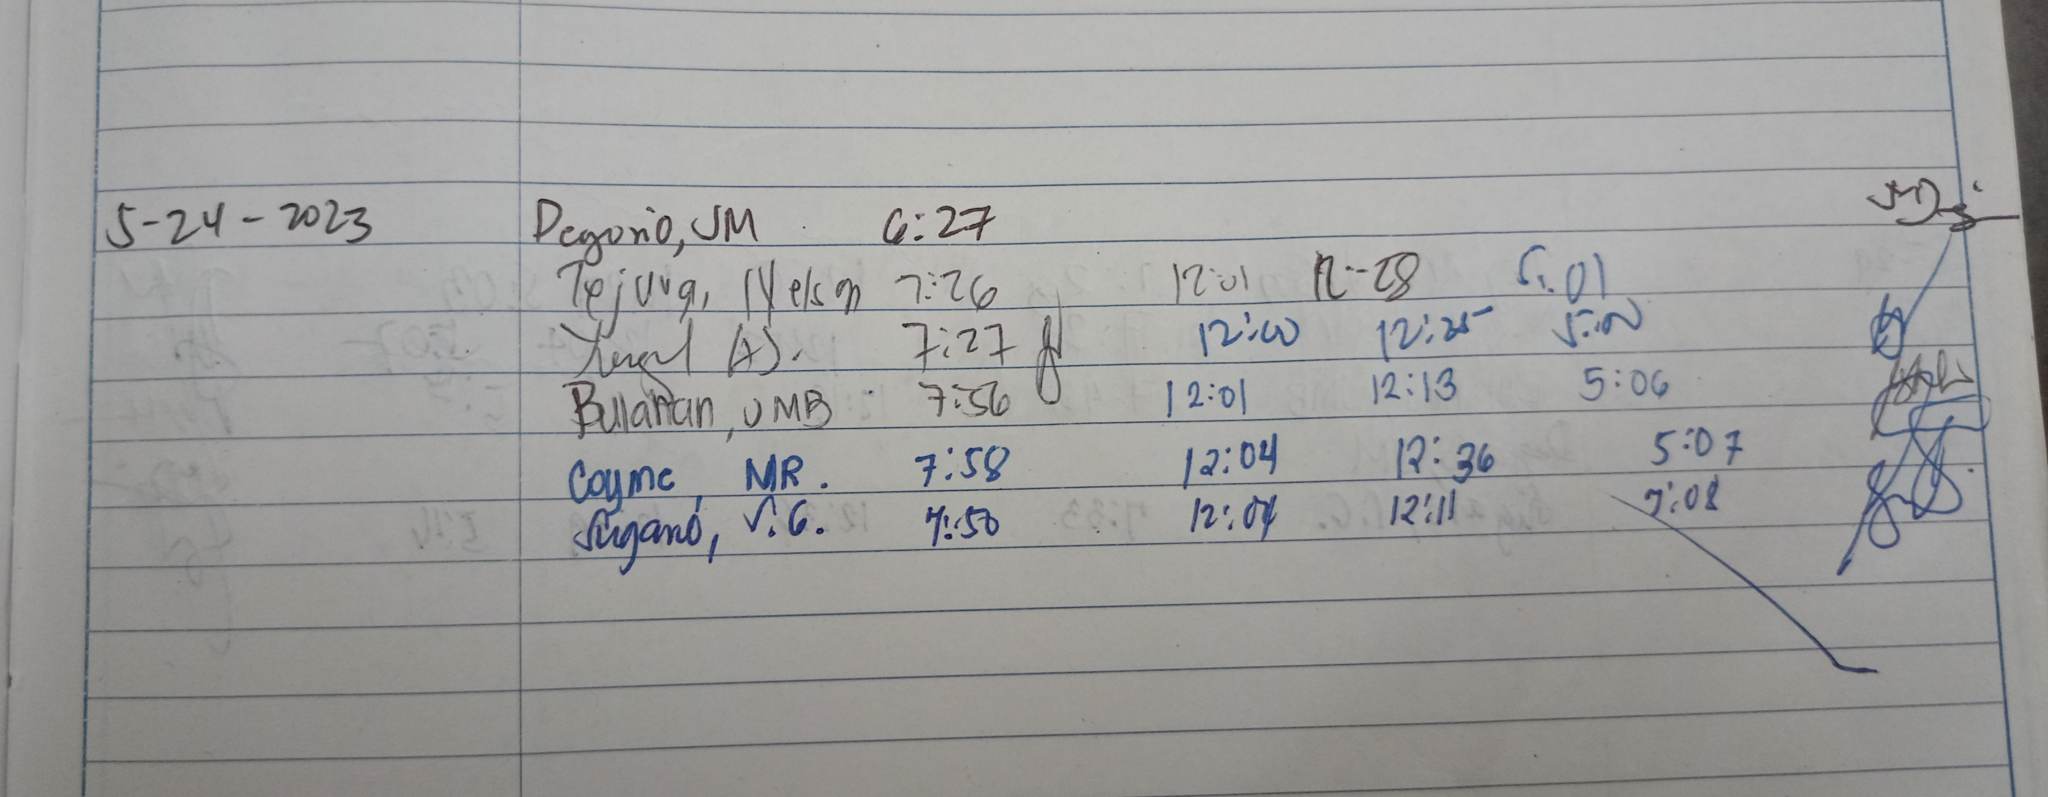 5-24-2023 Degorio, JM 6:27
Tejuva, Nelson 7:26 12:01 12:28 5:01
7:27 12:00 12:25
Bulahan, JMB 7:56 12:01 12:13 5:06
Coyme, MR. 7:58 12:04 12:36 5:07
Sugano, S.G. 7:50 12:04 12:11 7:08